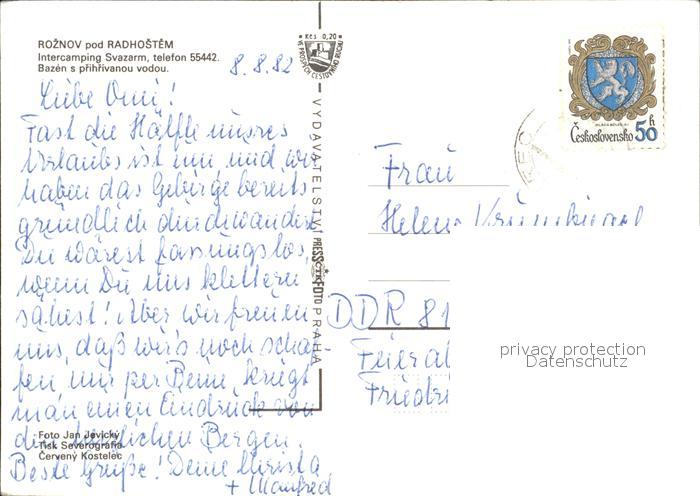 ROŽNOV pod RADHOŠTĚM
Intercamping Svazarm, telefon 55442.
Bazén s přihřívanou vodou.
8. 8. 82
Liebe Omi!
Fast die Hälfte unsres
Urlaubs ist nun, und wir
haben das Gebirge bereits
gründlich durchwandert.
Du wärest fassungslos,
wenn Du uns klettern
sähest! Aber wir freuen
uns, daß wir's noch schaf-
fen, nur per Beine kriegt
man einen Eindruck von
den herrlichen Bergen.
Beste Grüße! Deine Christa
+ Manfred
Foto Jan Jevický
Tisk Severografia
Červený Kostelec
Kčs 0,20
VE PROSPĚCH CESTOVNÍHO RUCHU
VYDAVATELSTVÍ PRESSFOTO PRAHA
Československo 50 h
Frau
Helene
DDR 81
Feiera
Friedri
privacy protection
Datenschutz